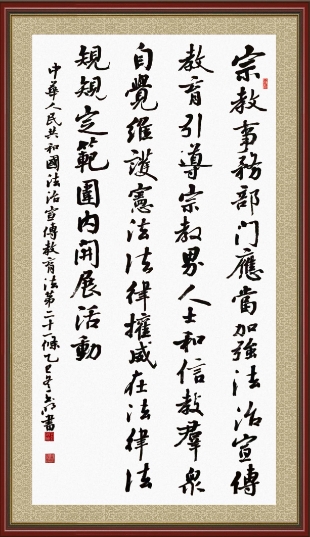 宗教事務部门應當加強法治宣傳
教育引導宗教界人士和信教羣衆
自覺維護憲法法律權威在法律法
規規定範圍内開展活動
中華人民共和國法治宣傳教育法第二十一條乙巳 書